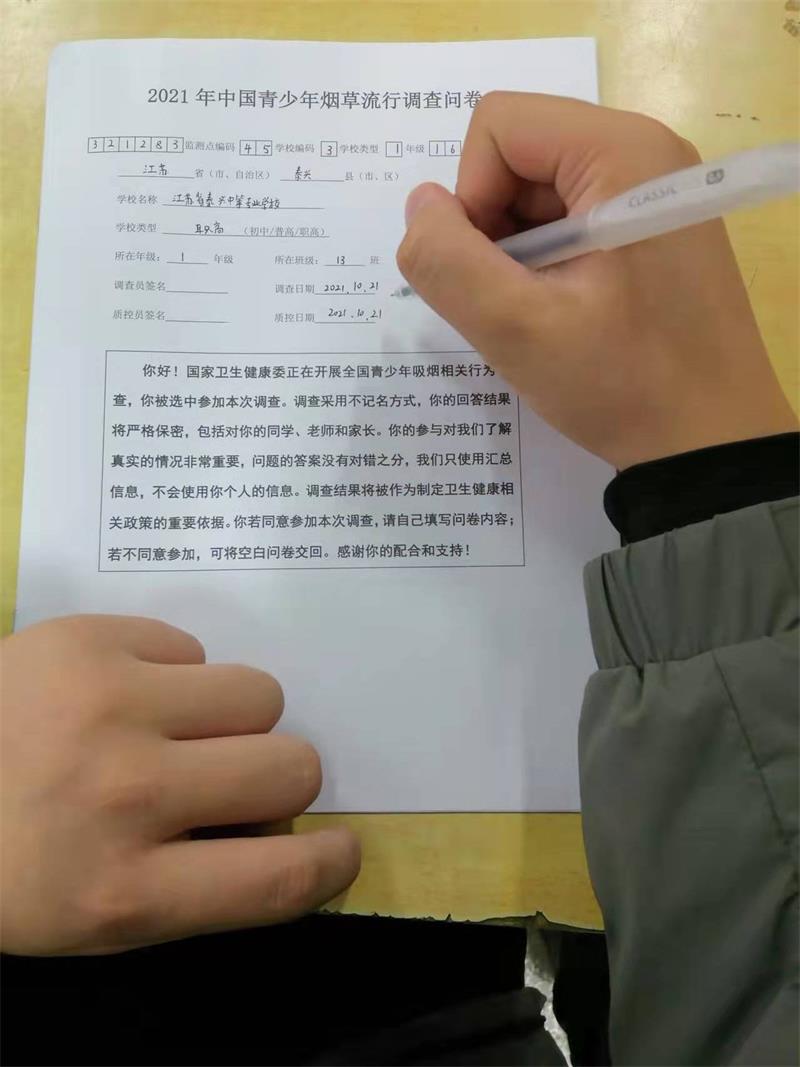 2021年中国青少年烟草流行调查问卷
321283监测点编码 45学校编码 3学校类型 1年级 16
江苏省(市、自治区) 泰兴县(市、区)
学校名称 江苏省泰兴中等专业学校
学校类型 职高(初中/普高/职高)
所在年级:1年级 所在班级:13班
调查员签名 调查日期 2021.10.21
质控员签名 质控日期 2021.10.21
你好!国家卫生健康委正在开展全国青少年吸烟相关行为
查,你被选中参加本次调查。调查采用不记名方式,你的回答结果
将严格保密,包括对你的同学、老师和家长。你的参与对我们了解
真实的情况非常重要,问题的答案没有对错之分,我们只使用汇总
信息,不会使用你个人的信息。调查结果将被作为制定卫生健康相
关政策的重要依据。你若同意参加本次调查,请自己填写问卷内容;
若不同意参加,可将空白问卷交回。感谢你的配合和支持!
CLASSIC